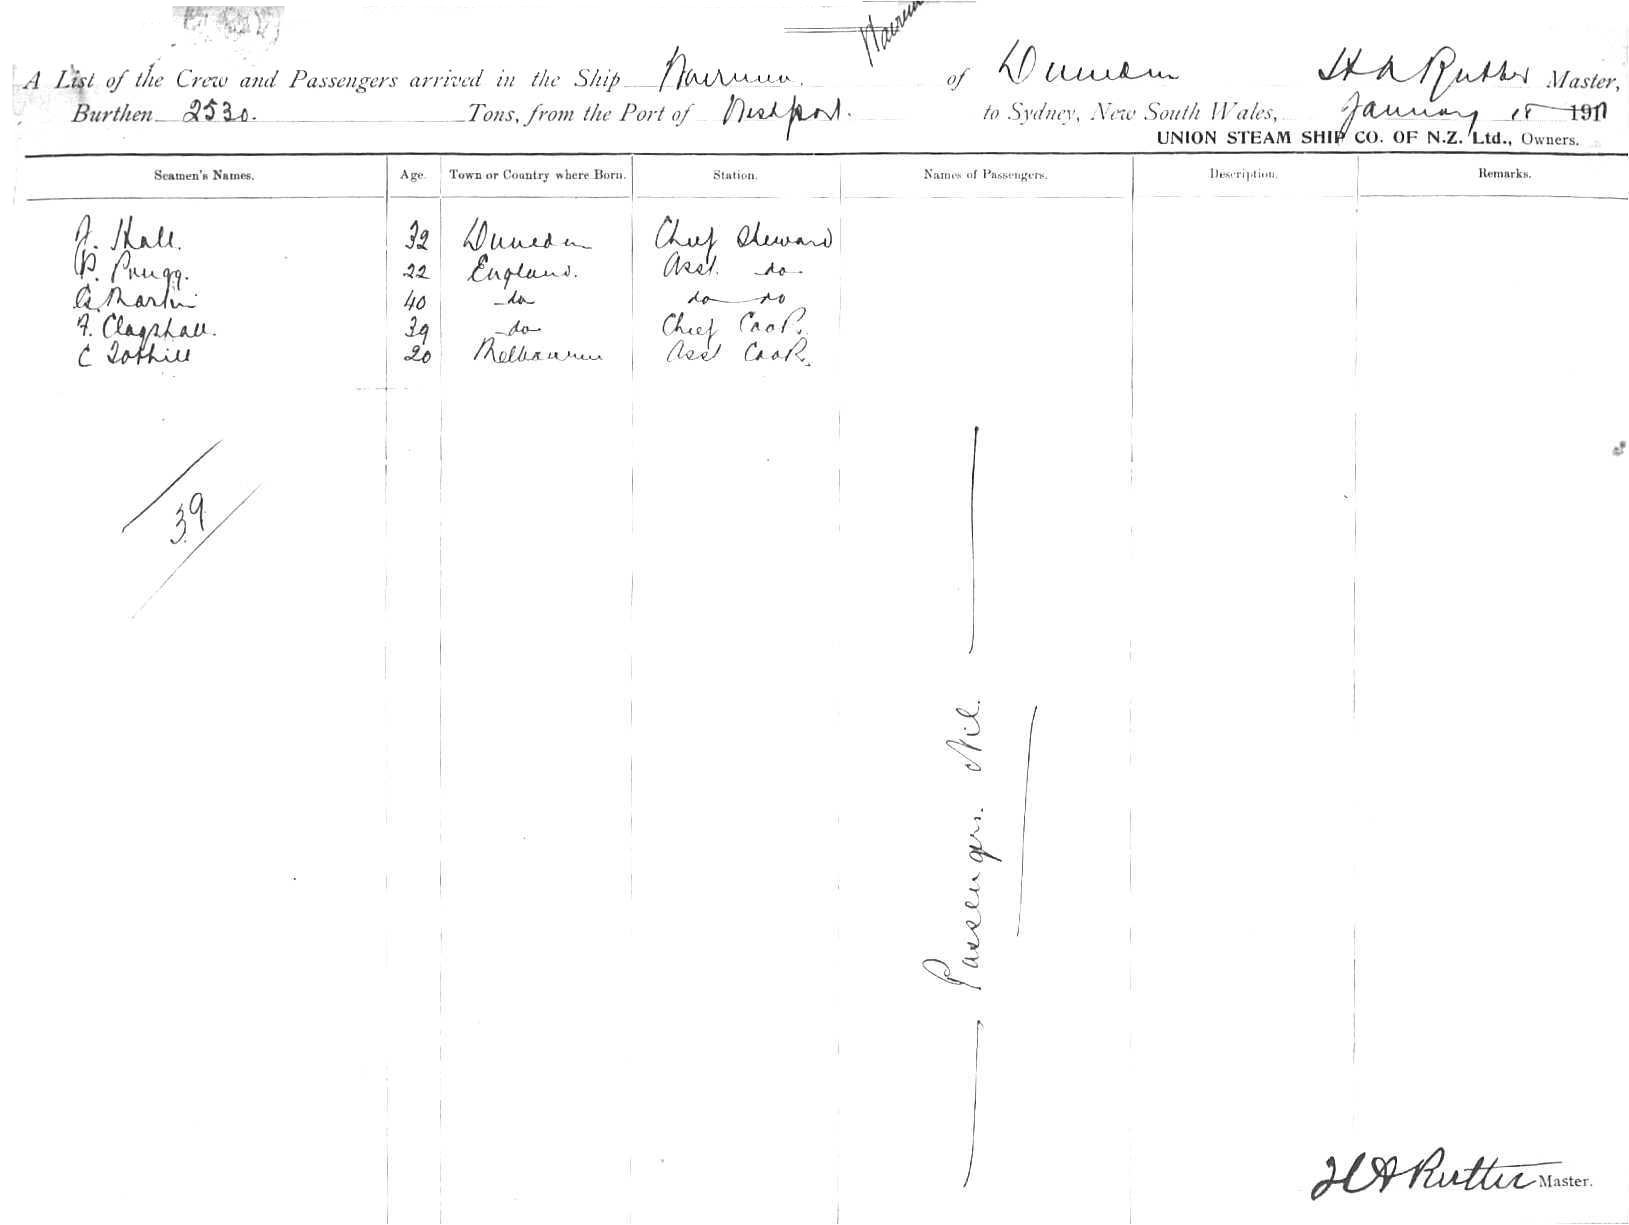 A List of the Crew and Passengers arrived in the Ship of Dunedin H A Rutter Master,
Burthen 2530. Tons, from the Port of Westport. to Sydney, New South Wales, January 1911
UNION STEAM SHIP CO. OF N.Z. Ltd., Owners.
Seamen's Names. Age. Town or Country where Born. Station. Names of Passengers. Description. Remarks.
Hall. 32 Dunedin Chief Steward
22 England. Asst. do
Martin 40 do do do
F. Clagshall. 39 do Chief Cook.
C Tothill 20 Melbourne Asst Cook.
39
Passengers. Nil.
H A Rutter Master.